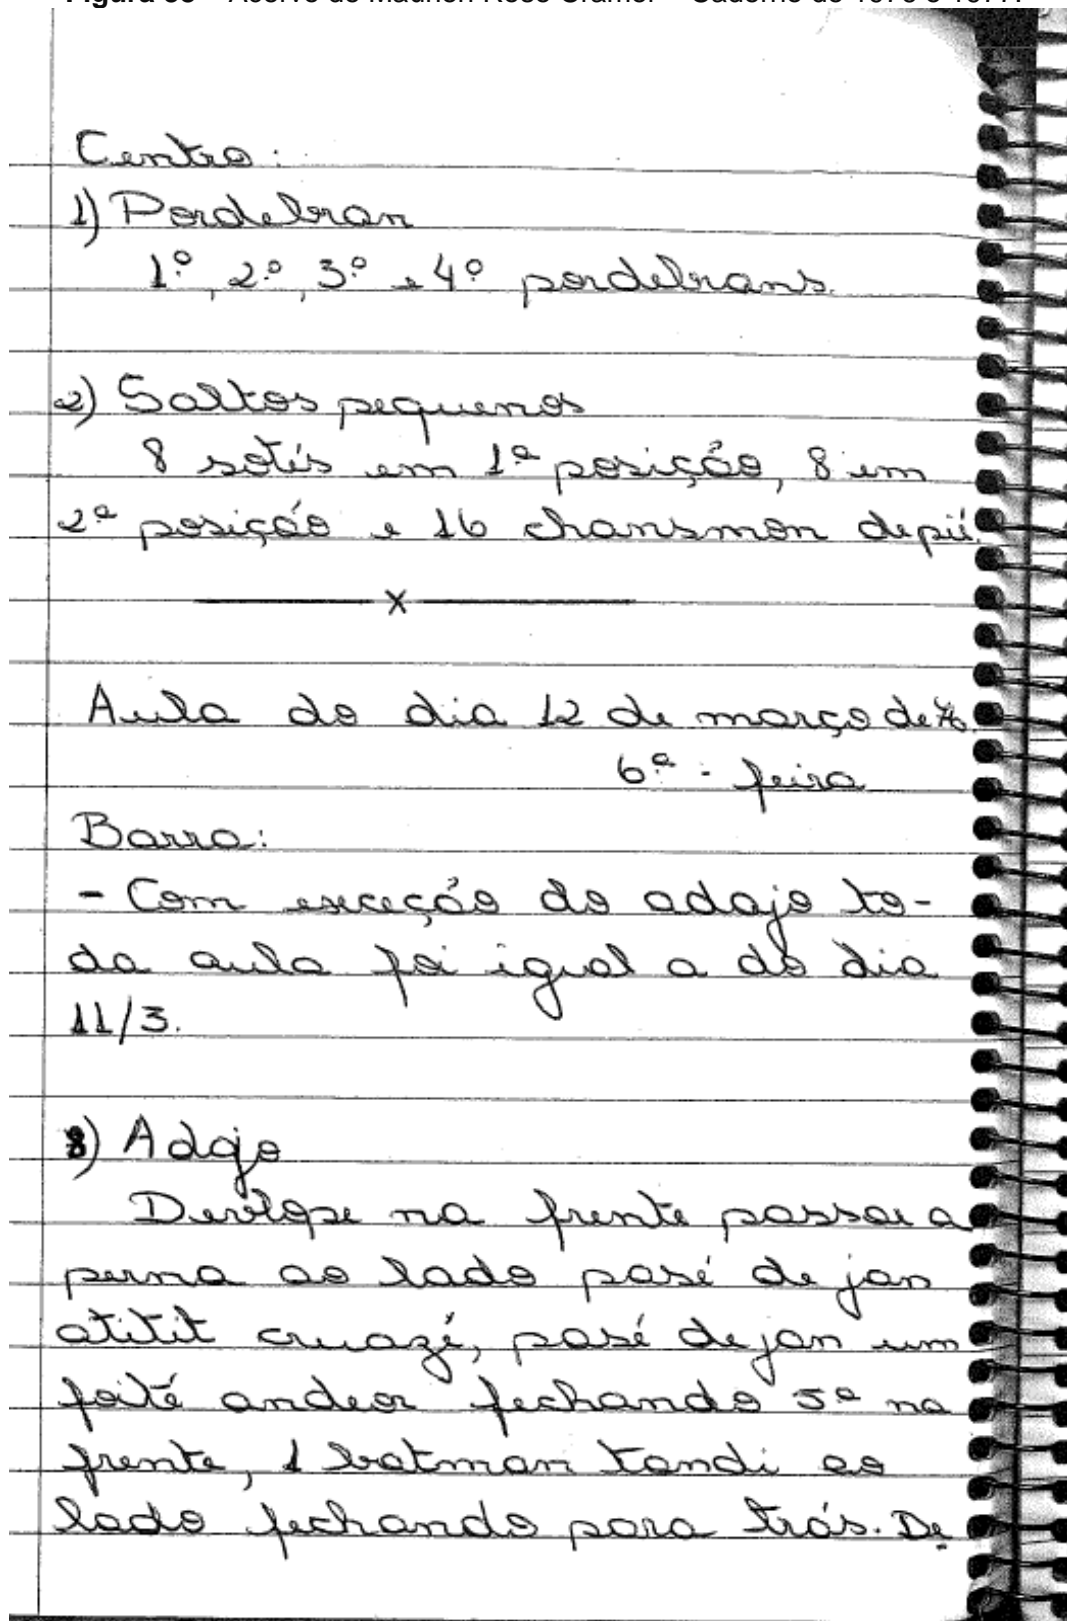 Centro:
1) Pordebran
1º, 2º, 3º e 4º pordebrans.
2) Saltos pequenos
8 sotis em 1ª posição, 8 em
2ª posição e 16 chansmon depiê
x
Aula do dia 12 de março de 76.
6ª - feira
Barra:
- Com exceção do adajo to-
da aula foi igual a do dia
11/3.
8) Adajo
Devlope na frente passar a
perna ao lado pasé de jan
atitit cruazé, pasé de jan um
foité andeor fechando 5ª na
frente, 1 batman tandi ao
lado fechando para trás. De